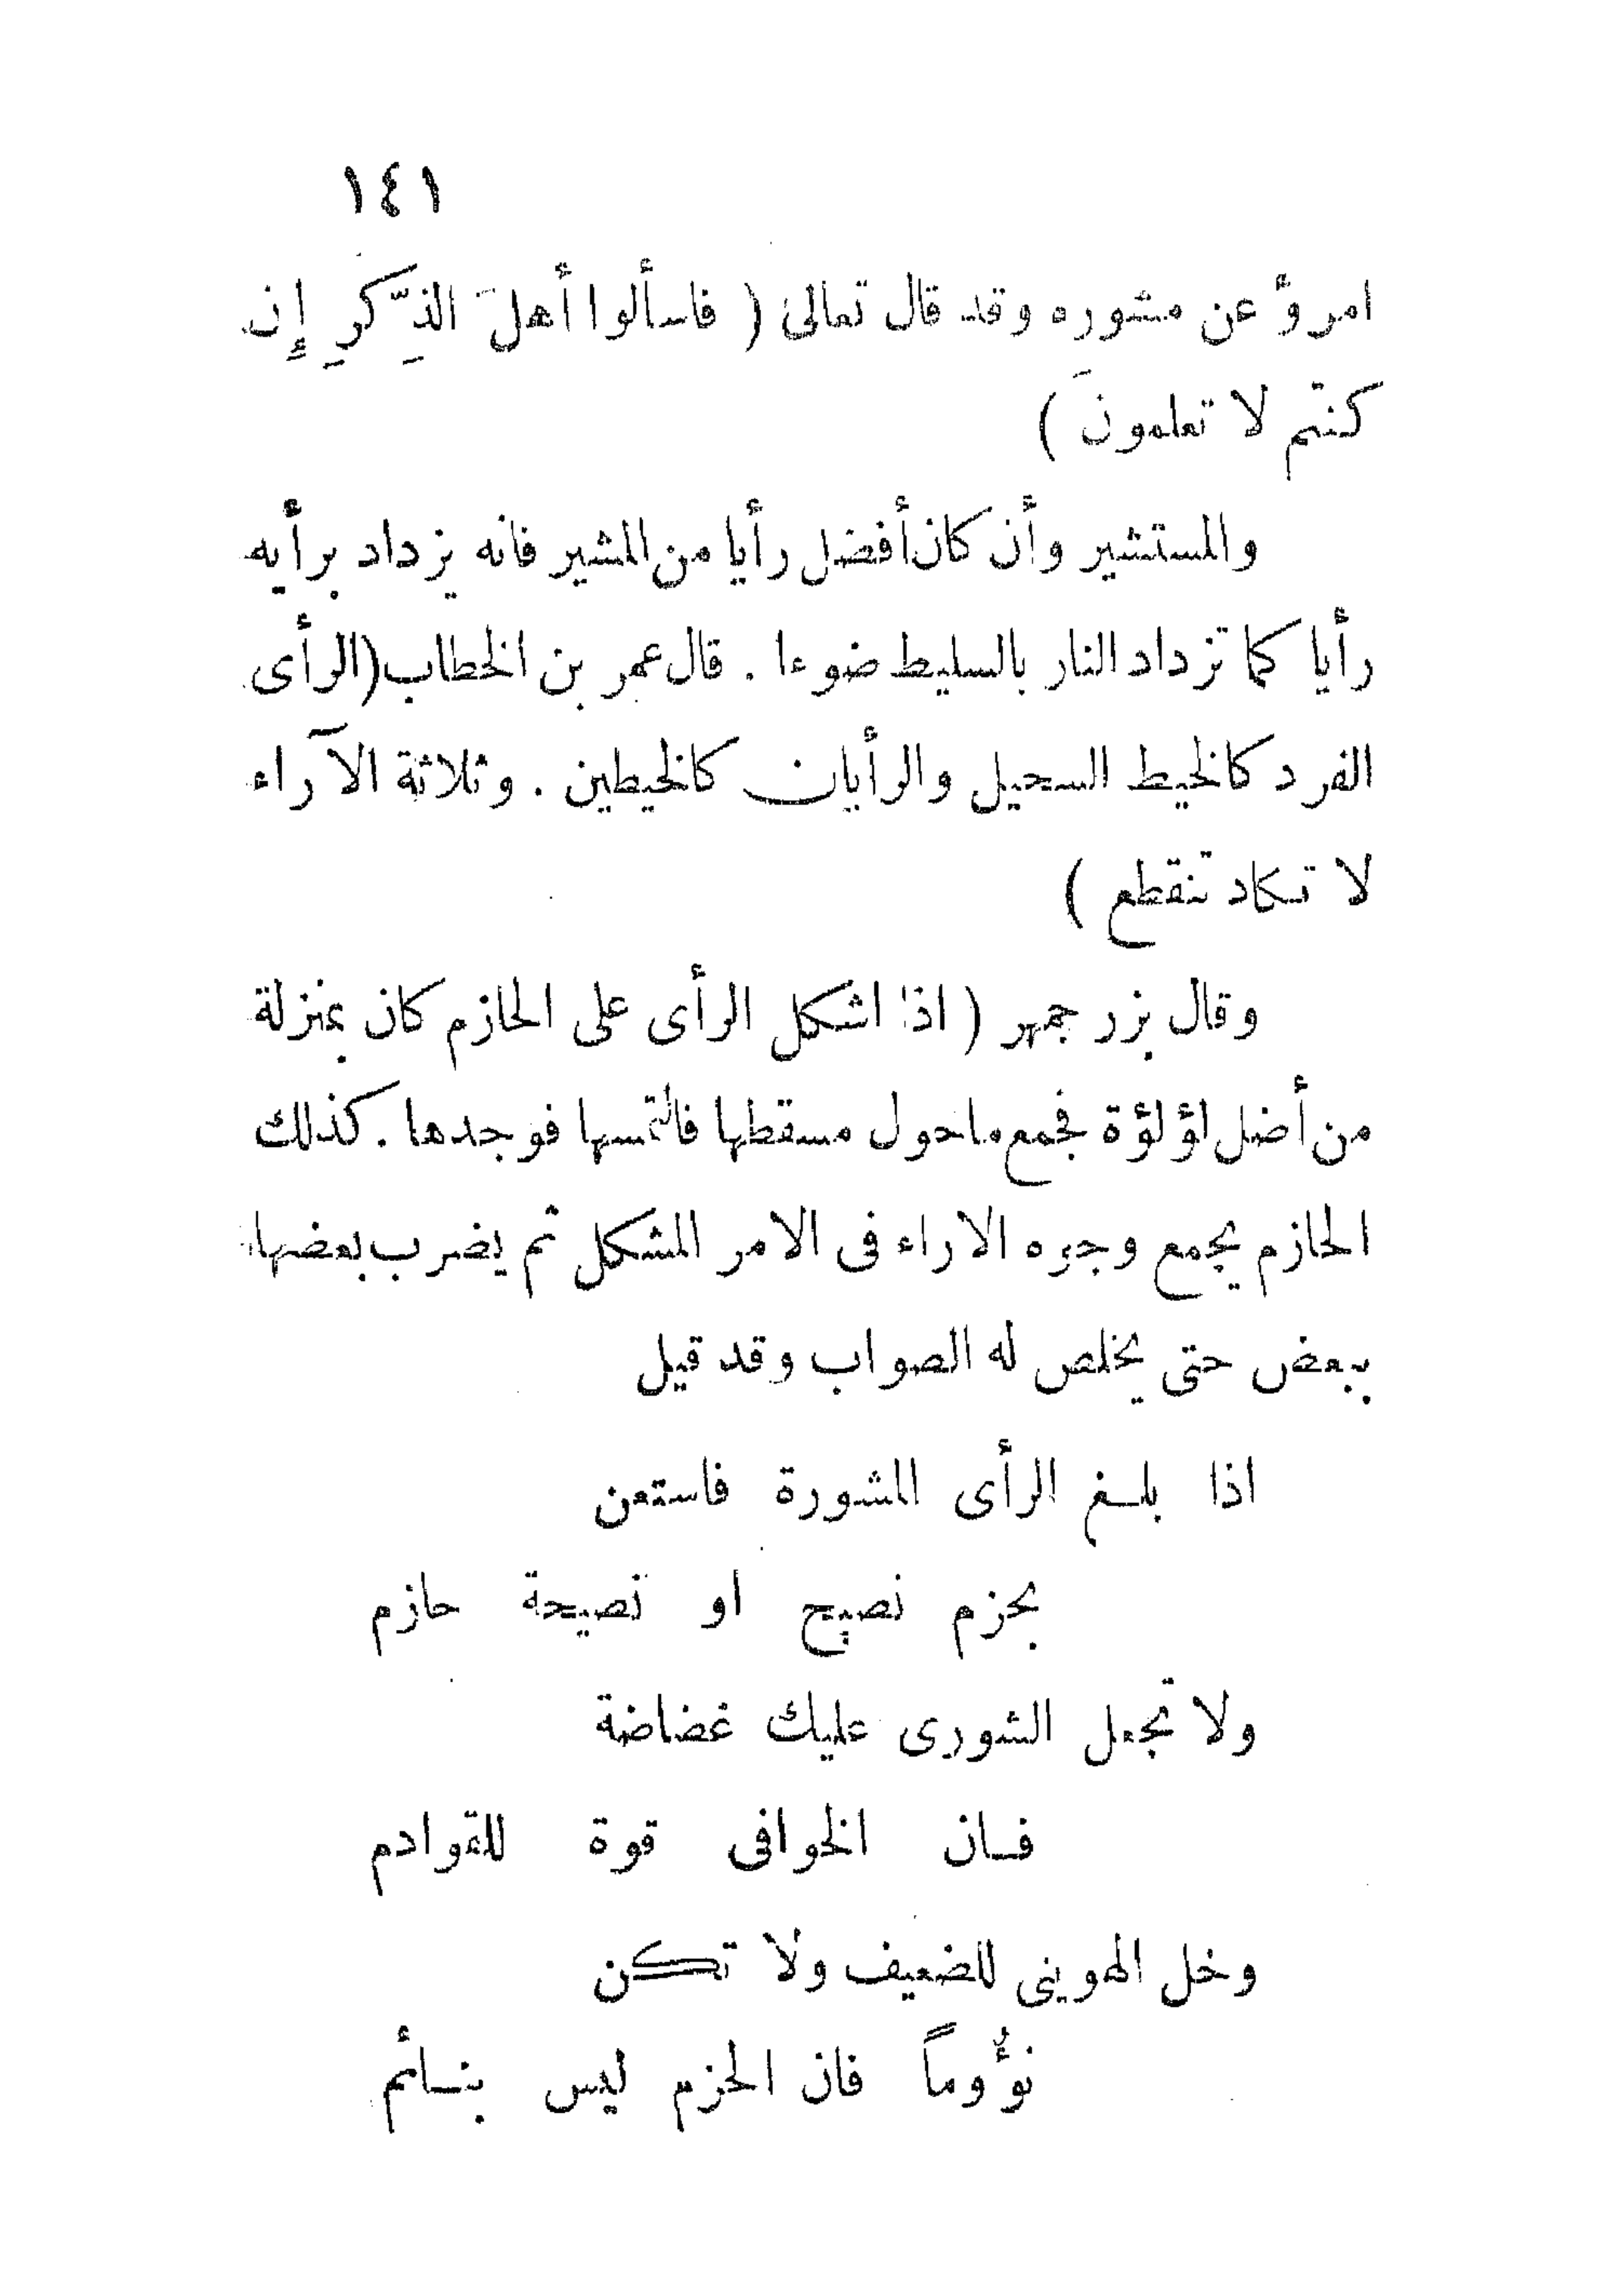 ١٤١
امرؤ عن مشوره وقد قال تعالى ( فاسألوا أهلَ الذِّكرِ إِن
كنتم لا تعلمونَ )
والمستشير وأن كان أفضل رأيا من المشير فانه يزداد برأيه
رأيا كما تزداد النار بالسليط ضوءا . قال عمر بن الخطاب (الرأى
الفرد كالخيط السحيل والرأيان كالخيطين . وثلاثة الآراء
لا تكاد تنقطع )
وقال بزر جمهر ( اذا اشكل الرأى على الحازم كان بمنزلة
من أضل لؤلؤة فجمع ماحول مسقطها فالتمسها فوجدها . كذلك
الحازم يجمع وجوه الاراء فى الامر المشكل ثم يضرب بعضها
ببعض حتى يخلص له الصواب وقد قيل
اذا بلغ الرأى المشورة فاستعن
بحزم نصيح او نصيحة حازم
ولا تجعل الشورى عليك غضاضة
فان الخوافى قوة للقوادم
وخل الهوينى للضعيف ولا تكن
نؤُوماً فان الحزم ليس بنائم